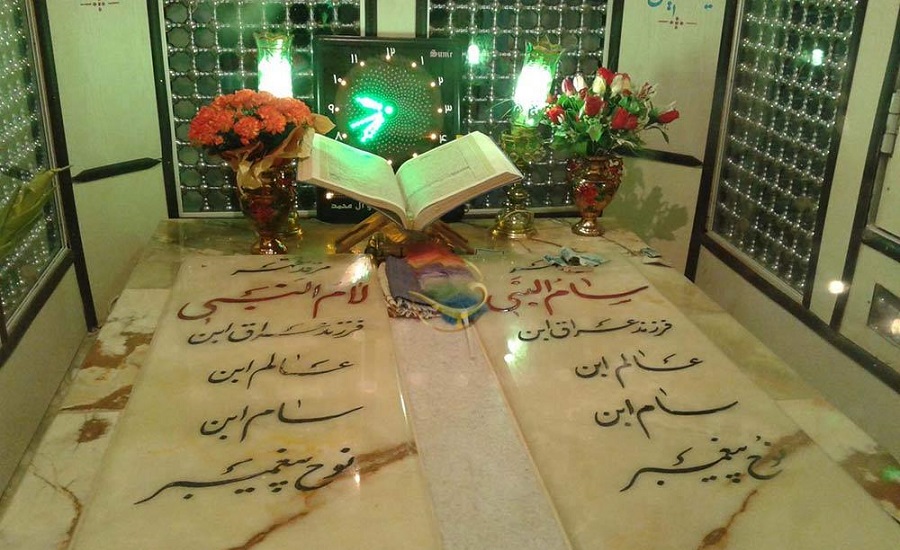 ۱۲
۱۱ ۱
۱۰ ۲
۹ ۳
۸ ۴
و آل محمد
سام النبی
فرزند عراق ابن
عالم ابن
سام ابن
نوح پیغمبر
لام النبی
فرزند عراق ابن
عالم ابن
سام ابن
نوح پیغمبر